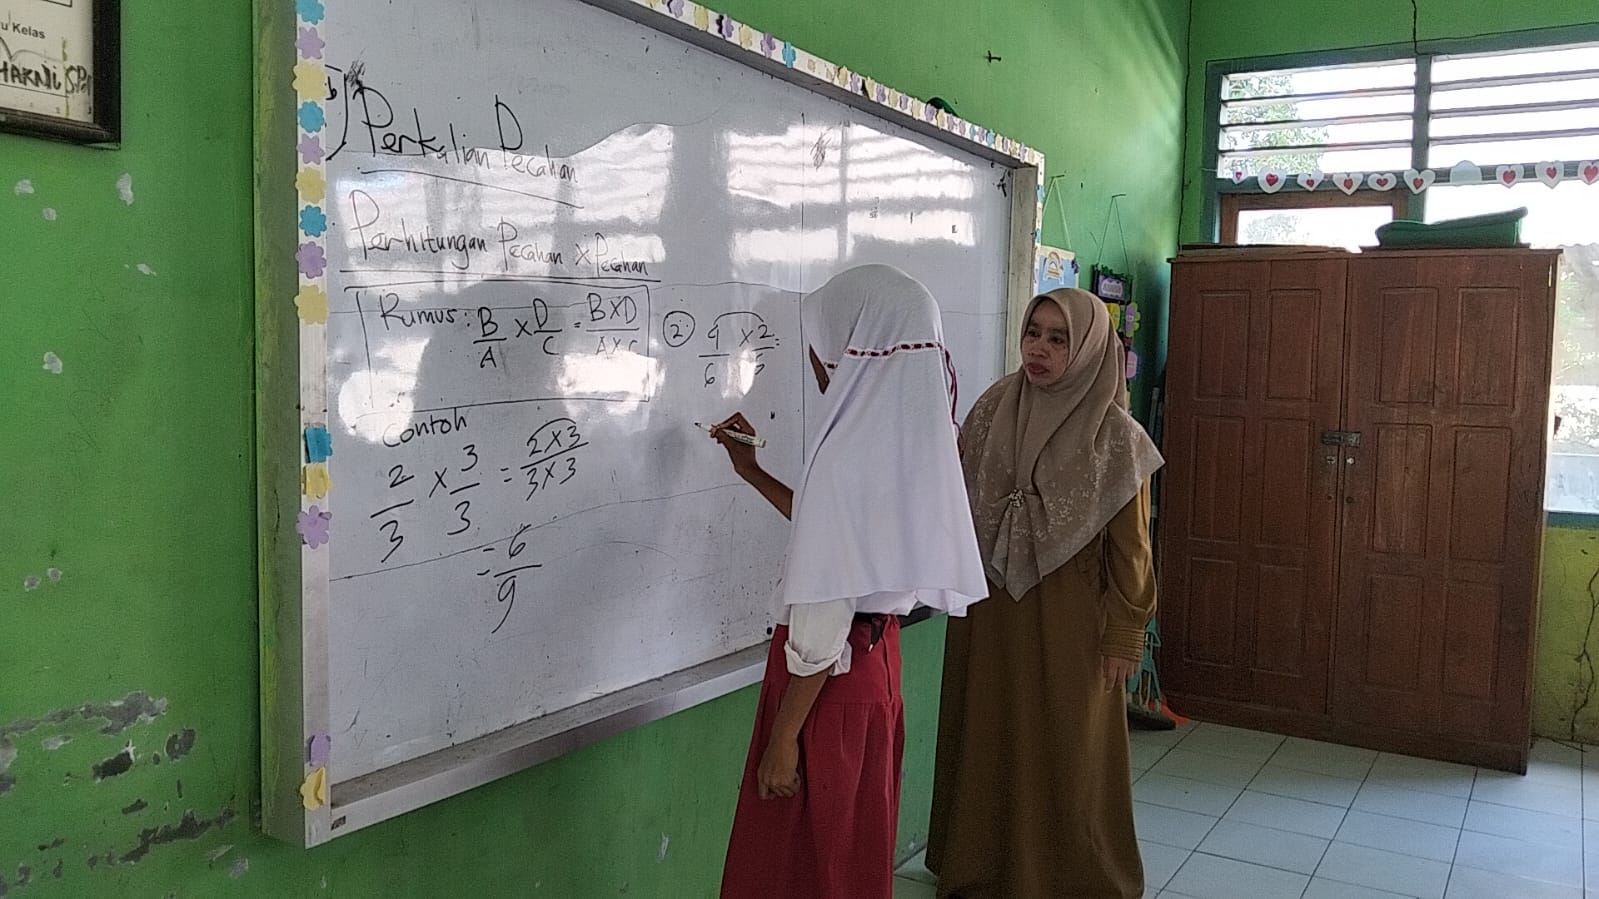 u Kelas
HARNI SPd
Perkalian Pecahan
Perhitungan Pecahan x Pecahan
Rumus: B/A x D/C = BxD/AxC
Contoh
2/3 x 3/3 = 2x3/3x3
= 6/9
2. 4/6 x 2/5 =